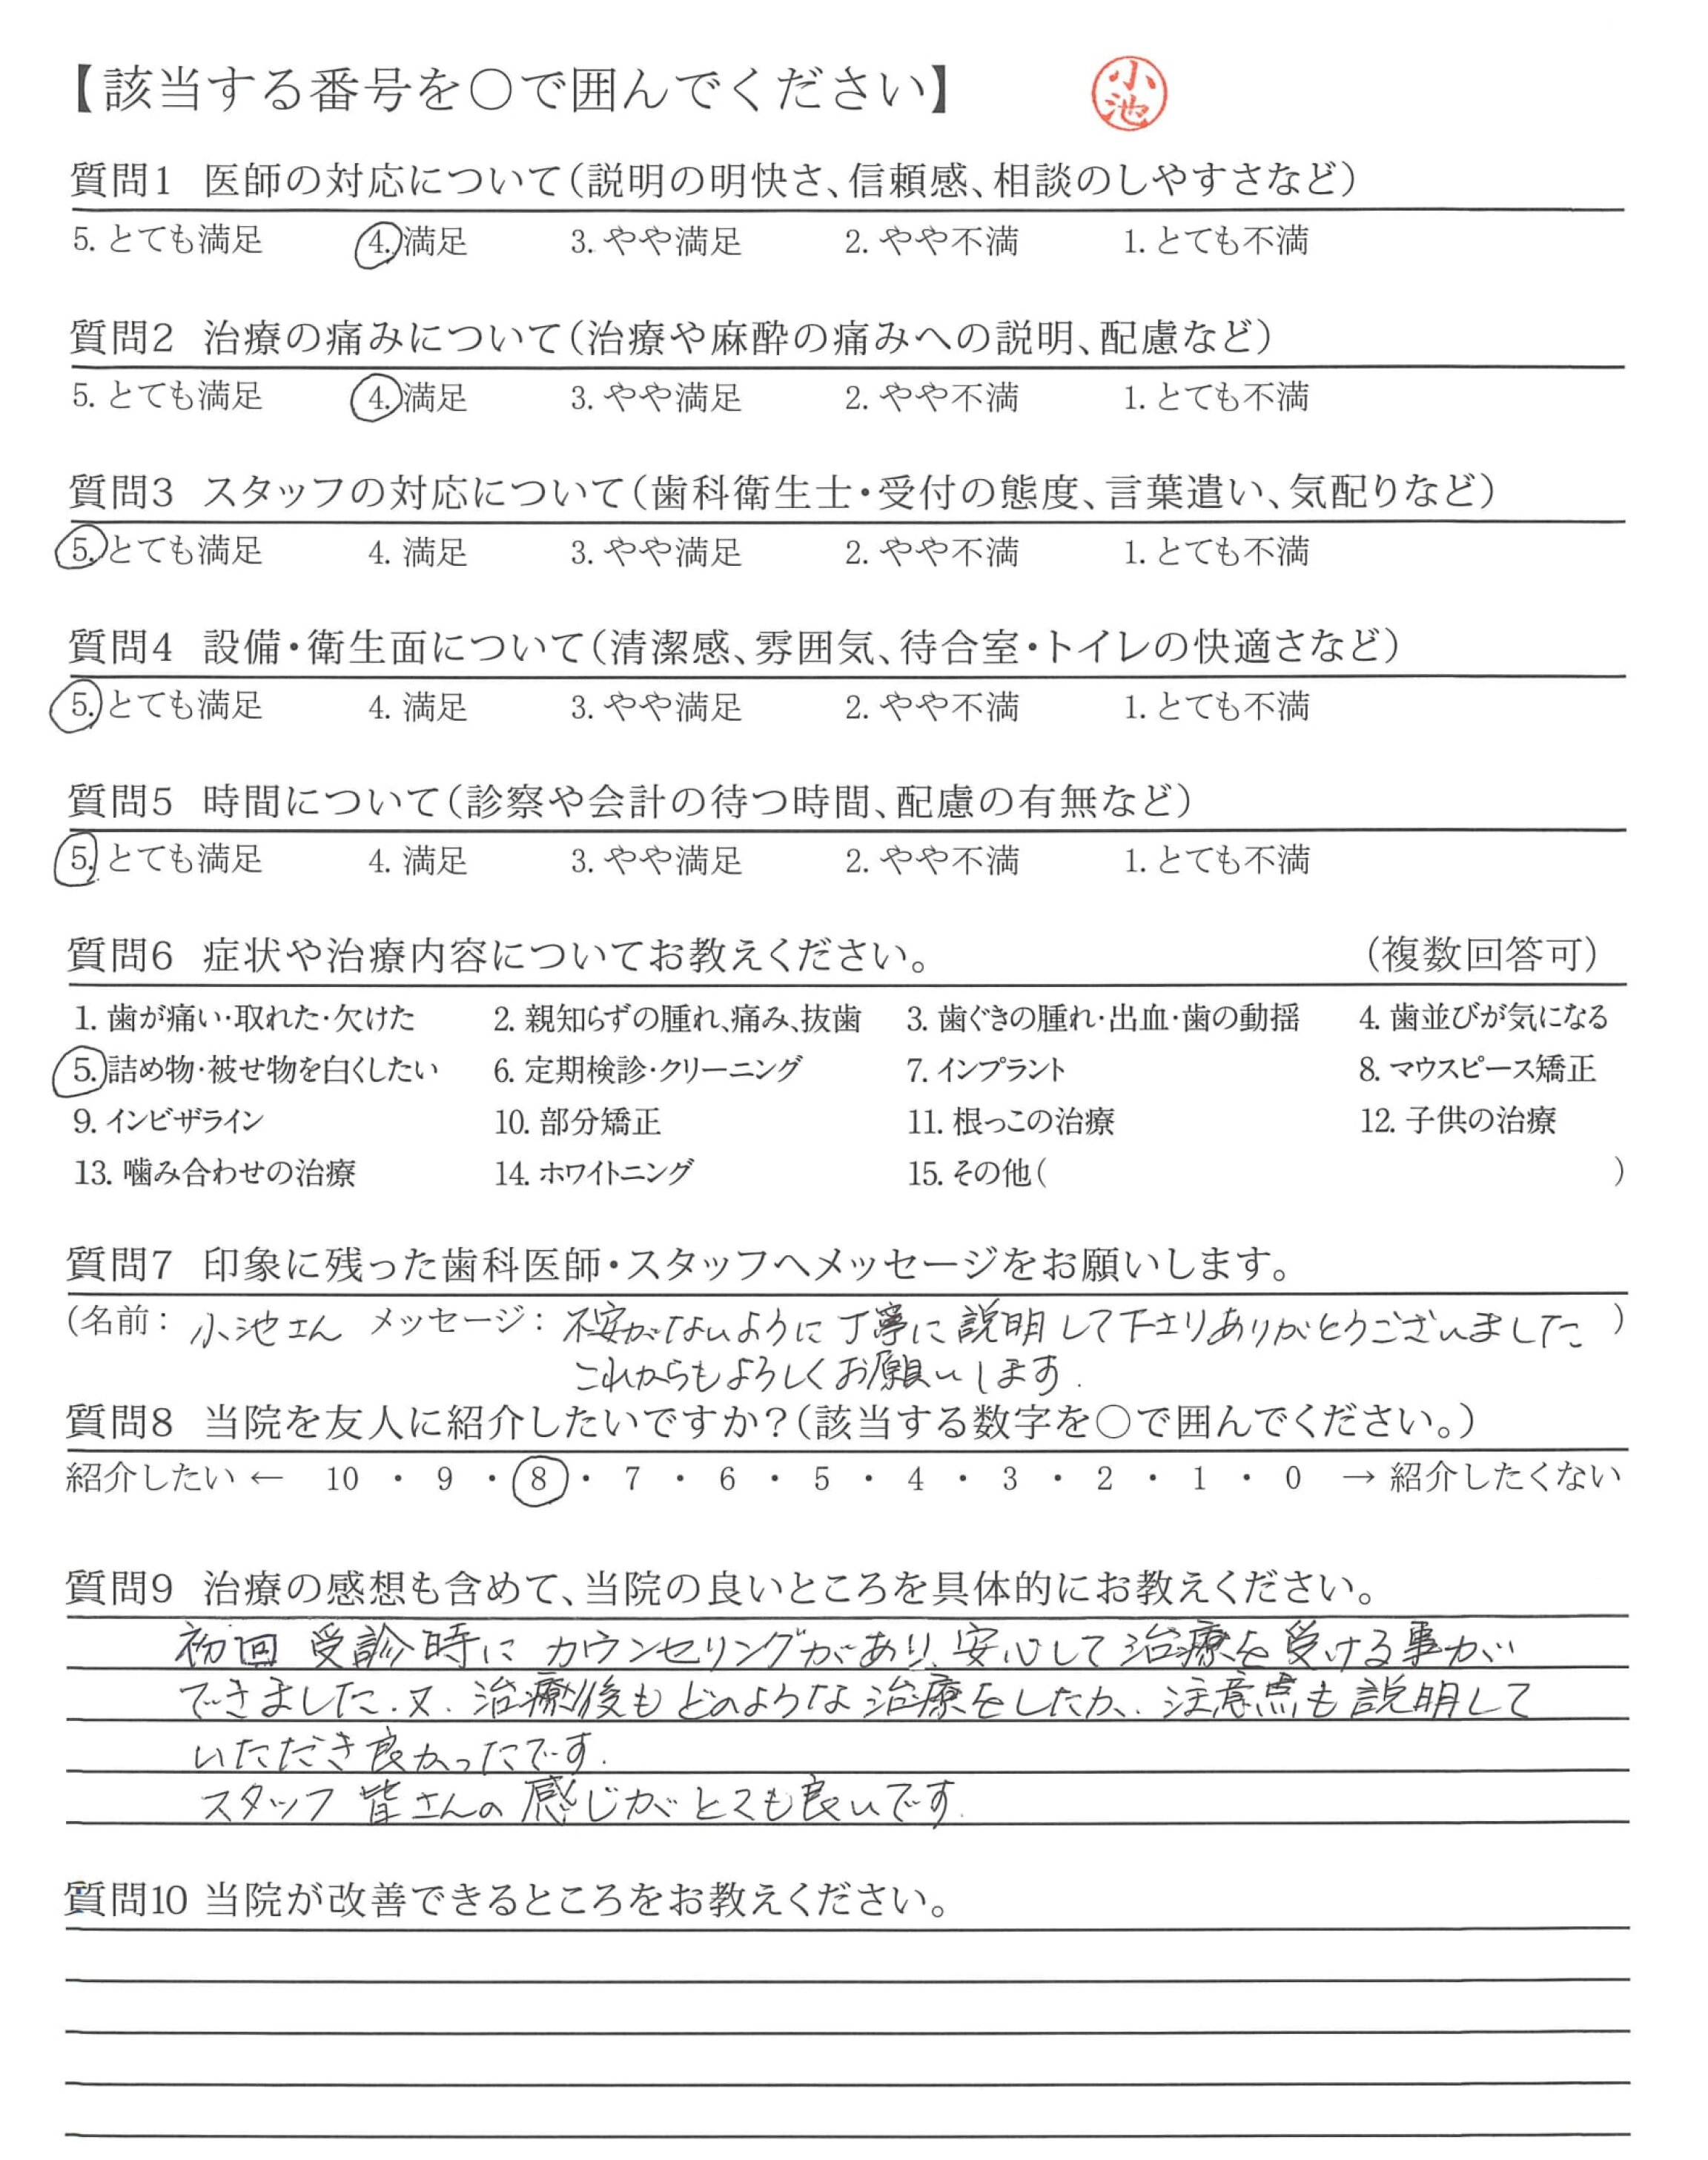 【該当する番号を○で囲んでください】 小池
質問1 医師の対応について（説明の明快さ、信頼感、相談のしやすさなど）
5. とても満足 4. 満足 3. やや満足 2. やや不満 1. とても不満
質問2 治療の痛みについて（治療や麻酔の痛みへの説明、配慮など）
5. とても満足 4. 満足 3. やや満足 2. やや不満 1. とても不満
質問3 スタッフの対応について（歯科衛生士・受付の態度、言葉遣い、気配りなど）
5. とても満足 4. 満足 3. やや満足 2. やや不満 1. とても不満
質問4 設備・衛生面について（清潔感、雰囲気、待合室・トイレの快適さなど）
5. とても満足 4. 満足 3. やや満足 2. やや不満 1. とても不満
質問5 時間について（診察や会計の待つ時間、配慮の有無など）
5. とても満足 4. 満足 3. やや満足 2. やや不満 1. とても不満
質問6 症状や治療内容についてお教えください。 （複数回答可）
1. 歯が痛い・取れた・欠けた 2. 親知らずの腫れ、痛み、抜歯 3. 歯ぐきの腫れ・出血・歯の動揺 4. 歯並びが気になる
5. 詰め物・被せ物を白くしたい 6. 定期検診・クリーニング 7. インプラント 8. マウスピース矯正
9. インビザライン 10. 部分矯正 11. 根っこの治療 12. 子供の治療
13. 噛み合わせの治療 14. ホワイトニング 15. その他（ ）
質問7 印象に残った歯科医師・スタッフへメッセージをお願いします。
（名前： 小池さん メッセージ： 不安がないように丁寧に説明して下さりありがとうございました ）
これからもよろしくお願いします.
質問8 当院を友人に紹介したいですか？（該当する数字を○で囲んでください。）
紹介したい ← 10 ・ 9 ・ 8 ・ 7 ・ 6 ・ 5 ・ 4 ・ 3 ・ 2 ・ 1 ・ 0 → 紹介したくない
質問9 治療の感想も含めて、当院の良いところを具体的にお教えください。
初回 受診時に カウンセリングがあり、安心して治療を受ける事が
できました.又.治療後もどのような治療をしたか、.注意点も説明して
いただき良かったです.
スタッフ 皆さんの感じがとても良いです.
質問10 当院が改善できるところをお教えください。